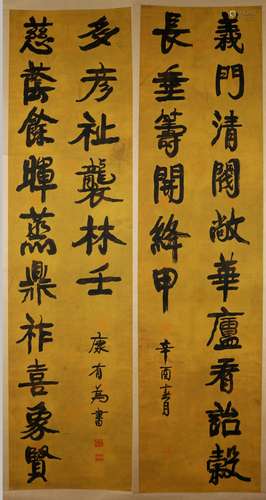 義門清閥敞華廬看詒穀
長垂籌開絳甲
辛酉十一月
慈蔭餘暉蒸鼎祚喜象賢
多彦祉襲林壬
康有為書